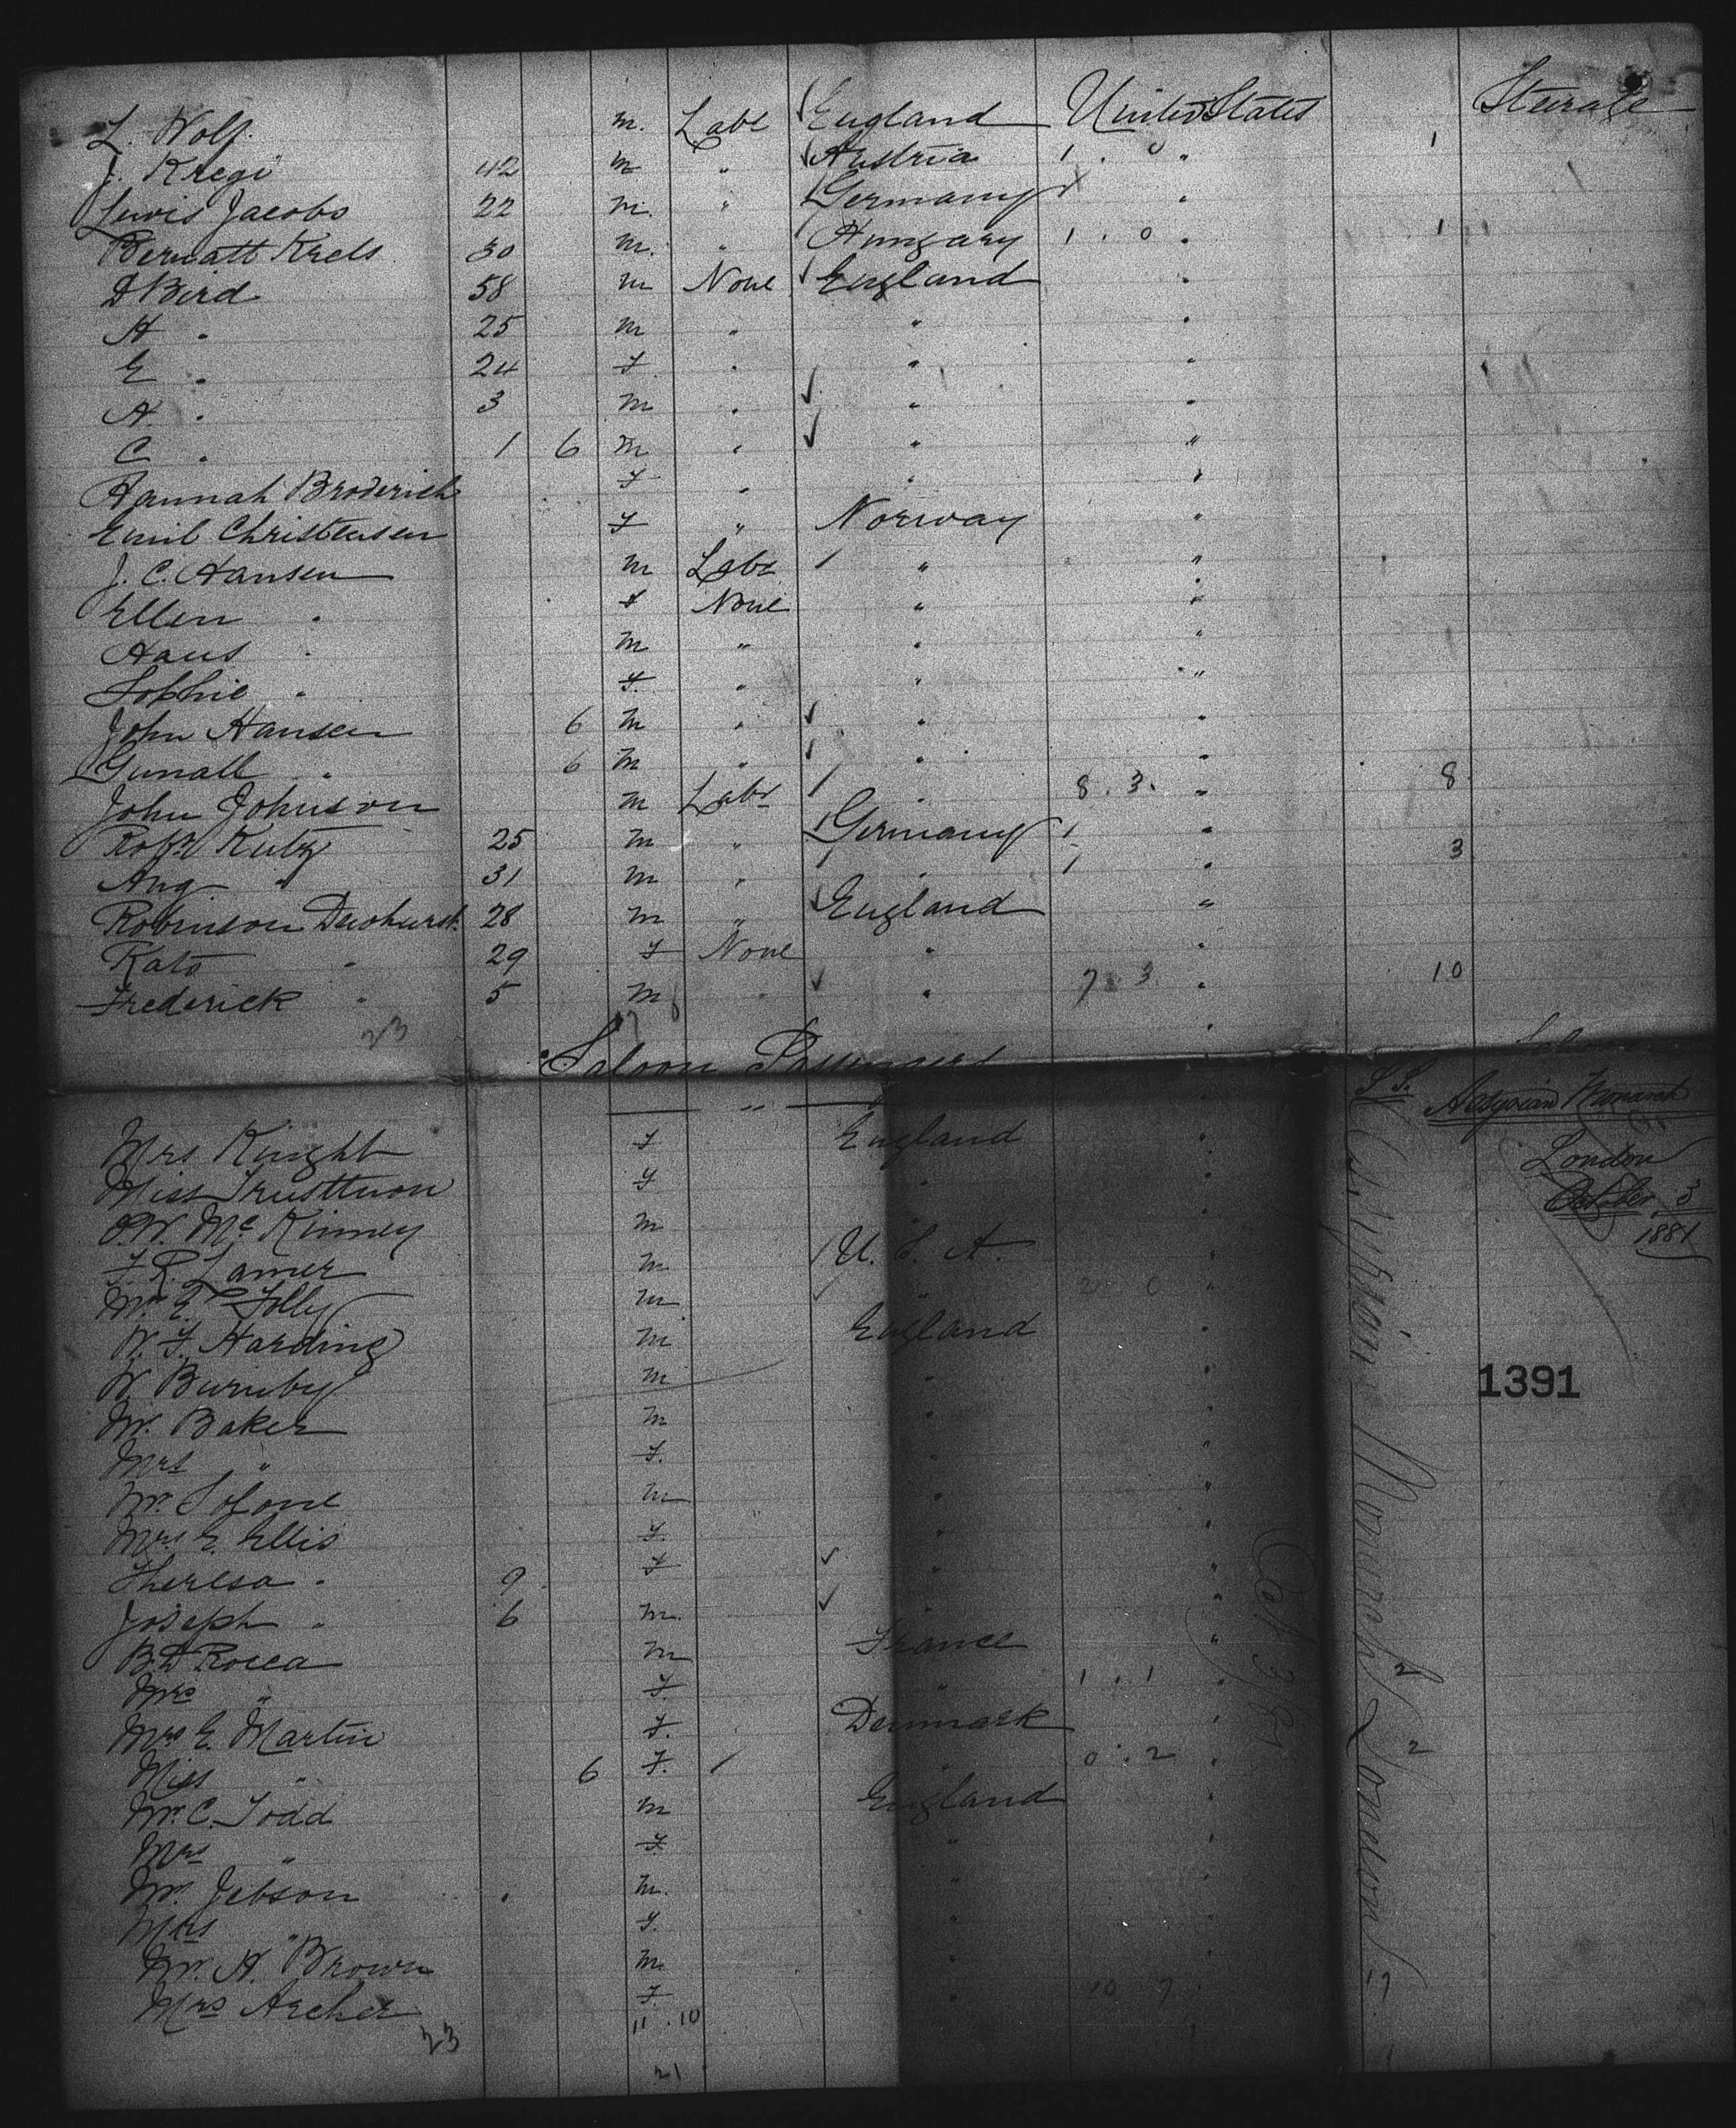 L. Wolf. m. Labr England United States Steerage
J. Kregi 42 m " Austria 1 . 0 " 1
Lewis Jacobs 22 m. " Germany 1 "
Bernatt Krels 30 m. " Hungary 1 . 0 " 1
D Bird 58 m None England "
H " 25 m " " "
E " 24 F " " "
A " 3 m " " "
C " 1 6 m " " "
Hannah Broderick F " " "
Emil Christensen F " Norway "
J. C. Hansen m Labr " "
Ellen " F None " "
Hans " m " " "
Sophie " F. " " "
John Hansen 6 m " " "
Gunall " 6 m " " "
John Johnson m Labr " 8 . 3 . " 8
Robt Kutz 25 m " Germany 1 "
Aug " 31 m " " 1 " 3
Robinson Dewhurst 28 m " England "
Kate " 29 F None " "
Frederick " 5 m " " 7 . 3 " 10
23
Saloon Passengers
S.S. Assyrian Monarch
London
October 3
1881
1391
Mrs Knight F England "
Miss F " "
O.W. McKinney m " "
F. R. Lamer m U. S. A. "
Mr E. Jolly m " 2 . 0 "
W. F. Harding m England "
W. Burnby m " "
Mr. Baker m " "
Mrs " F. " "
Mr. Solone m " "
Mrs E. Ellis F. " "
Theresa " 9 F " "
Joseph " 6 m. " "
B. D Rocca m France "
Mrs " F. " 1 . 1 " 2
Mrs E. Martin F. Denmark "
Miss " 6 F. " 0 . 2 " 2
Mr. C. Todd m England "
Mrs " F. " "
Mr. Jebson m. " "
Mrs " F. " "
Mr. H. Brown m. " "
Mrs Archer F. " 10 7 17
23 11 . 10
21
Assyrian Monarch London
Oct 3/81